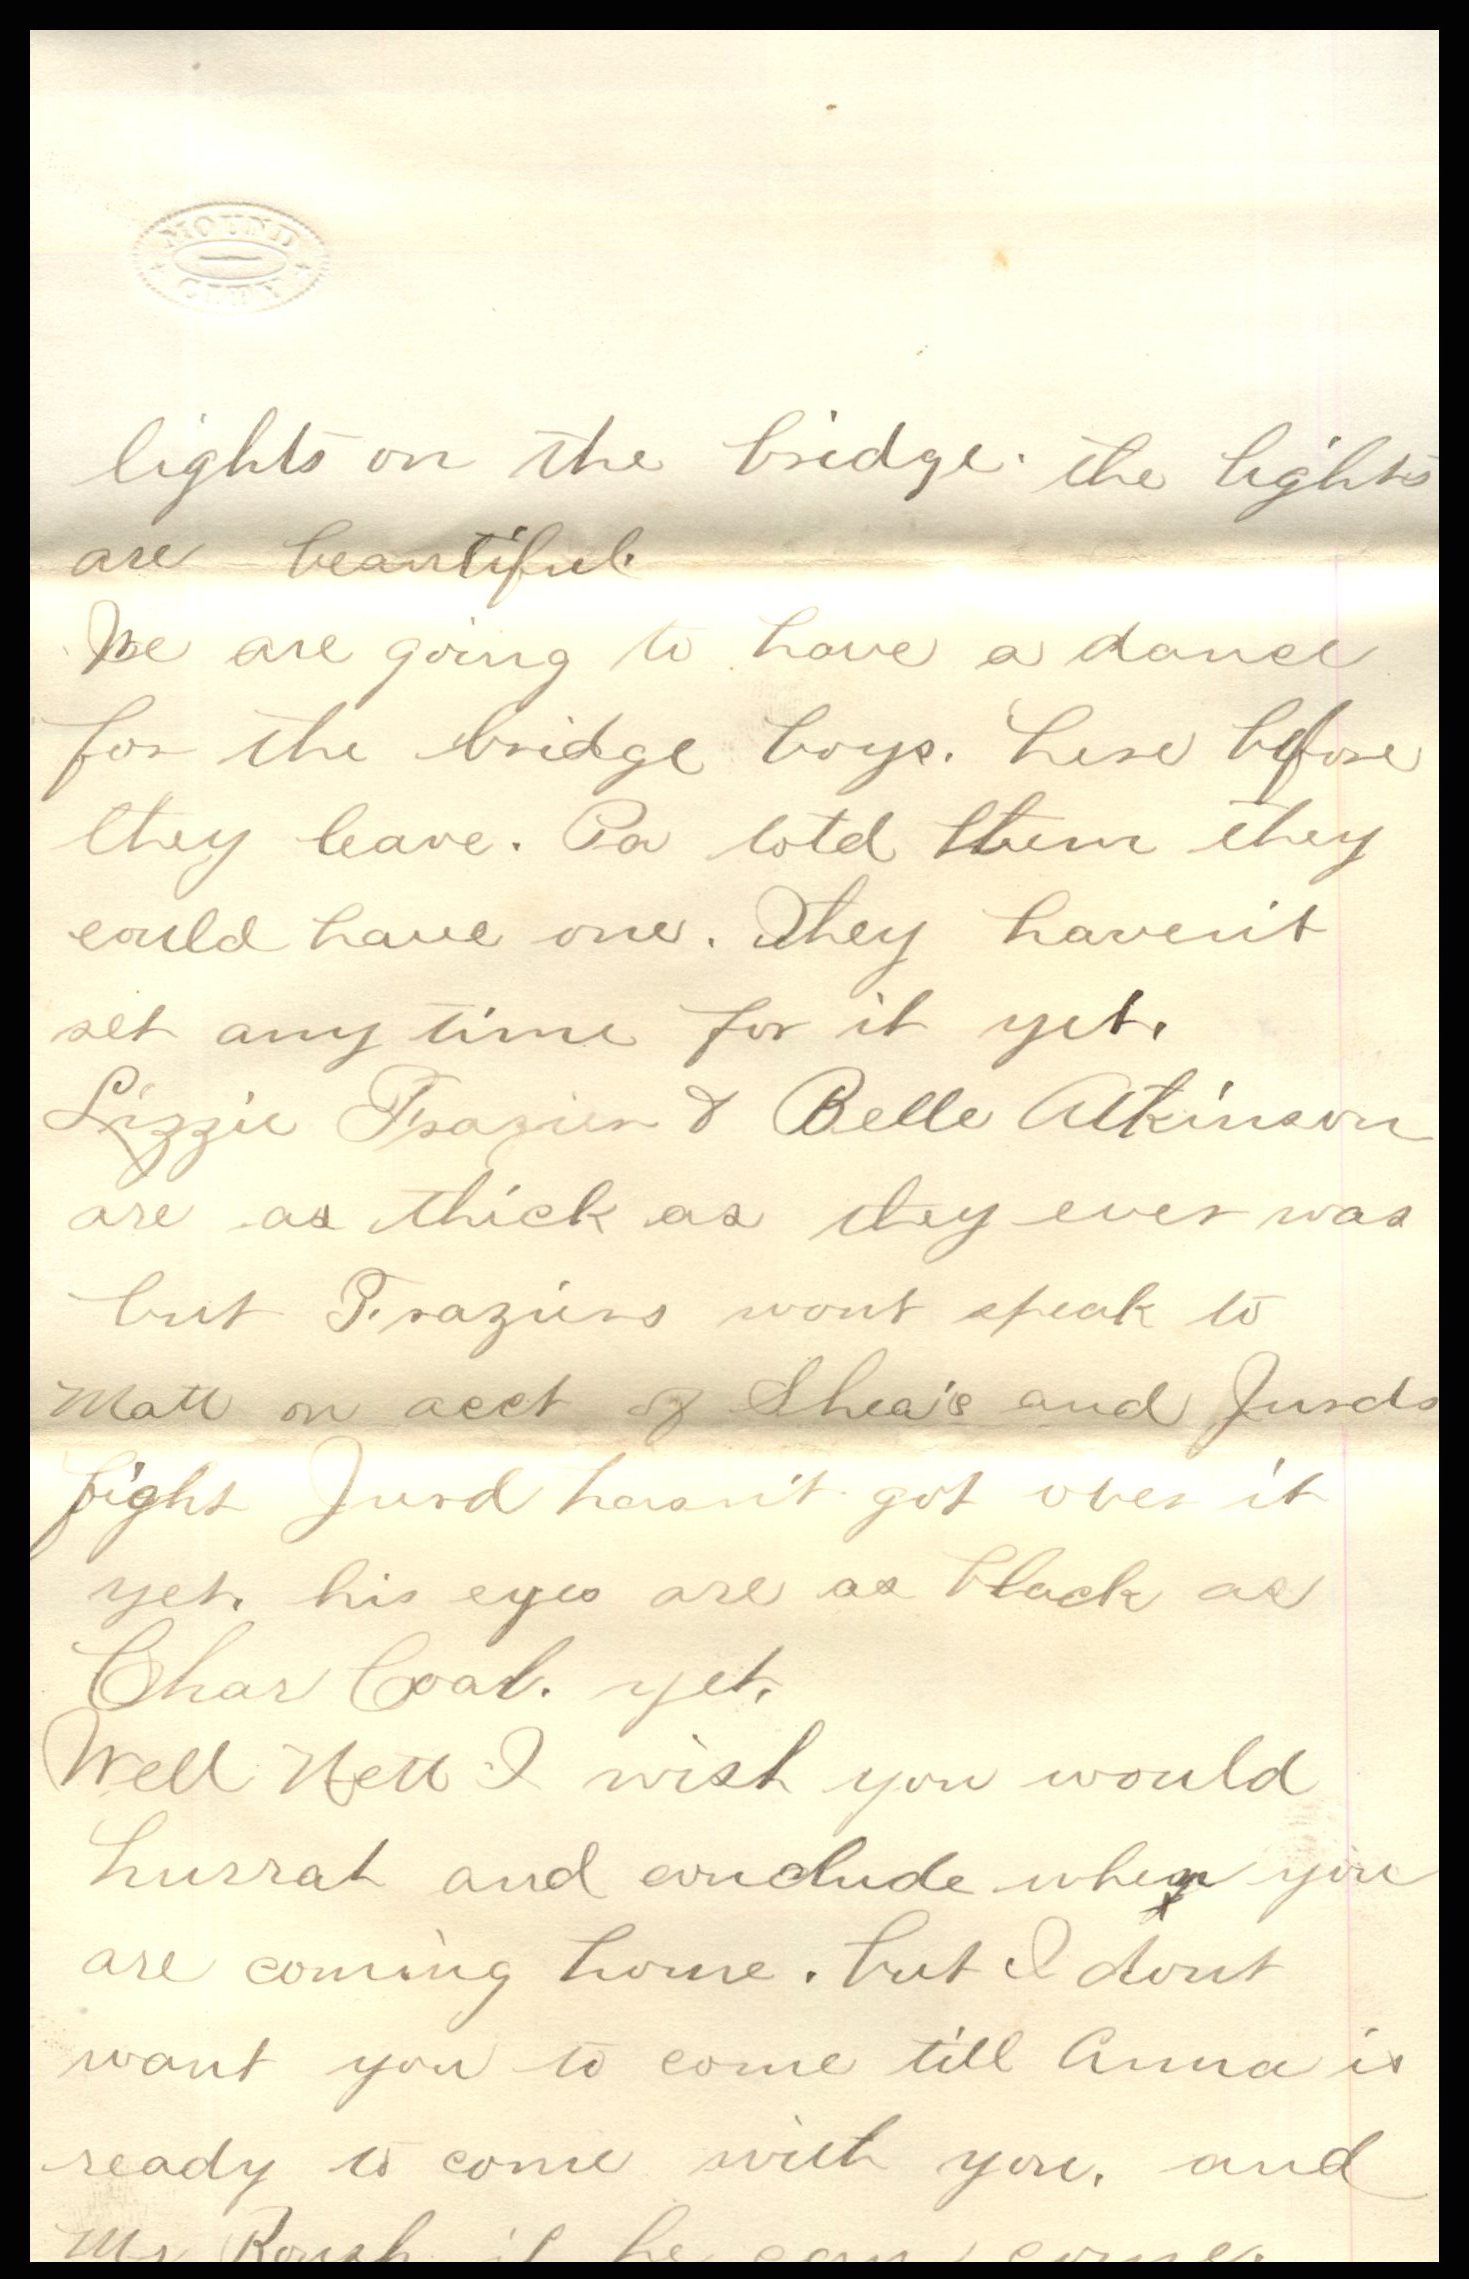 MOUND
CITY
lights on the bridge. the lights
are beautiful.
We are going to have a dance
for the bridge boys. here before
they leave. Pa totd them they
could have one. They haven't
set any time for it yet.
Lizzie Frazier & Belle Atkinson
are as thick as they ever was
but Fraziers wont speak to
Matt on acct of Shea's and Jurds
fight Jurd hasn't got over it
yet. his eyes are as black as
Char Coal. yet.
Well Nett I wish you would
hurrah and conclude when you
are coming home. but I dont
want you to come till Anna is
ready to come with you. and
Mr Roush if he can come.